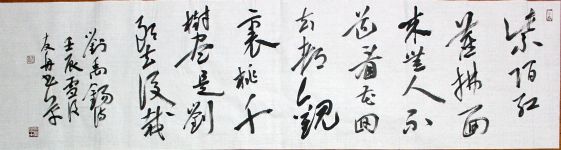 紫陌紅
塵拂面
來無人不
道看花回
玄都觀
裏桃千
樹盡是劉
郎去後栽
劉禹錫詩
壬辰雪後